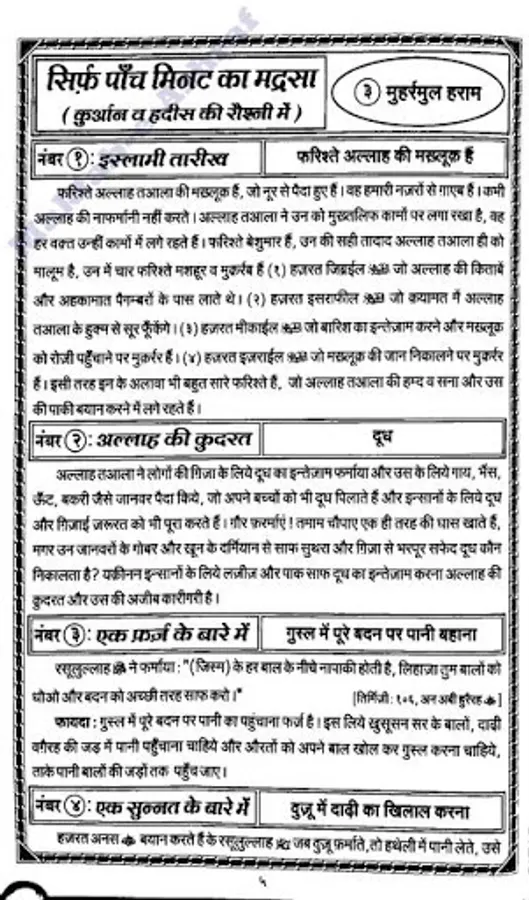 सिर्फ़ पाँच मिनट का मद्रसा
( क़ुर्आन व हदीस की रौश्नी में )
③ मुहर्रमुल हराम
नंबर ①: इस्लामी तारीख
फरिश्ते अल्लाह की मख़्लूक़ हैं
फरिश्ते अल्लाह तआला की मख़्लूक़ हैं, जो नूर से पैदा हुए हैं। वह हमारी नज़रों से ग़ाएब हैं। कभी
अल्लाह की नाफ़र्मानी नहीं करते। अल्लाह तआला ने उन को मुख़्तलिफ कामों पर लगा रखा है, वह
हर वक़्त उन्हीं कामों में लगे रहते हैं। फरिश्ते बेशुमार हैं, उन की सही तादाद अल्लाह तआला ही को
मालूम है, उन में चार फरिश्ते मशहूर व मुक़र्रब हैं (१) हज़रत जिब्रईल जो अल्लाह की किताबें
और अहकामात पैग़म्बरों के पास लाते थे। (२) हज़रत इसराफील जो क़यामत में अल्लाह
तआला के हुक्म से सूर फूँकेंगे। (३) हज़रत मीकाईल जो बारिश का इन्तेज़ाम करने और मख़्लूक़
को रोज़ी पहुँचाने पर मुक़र्रर हैं। (४) हज़रत इज़राईल जो मख़्लूक़ की जान निकालने पर मुक़र्रर
हैं। इसी तरह इन के अलावा भी बहुत सारे फरिश्ते हैं, जो अल्लाह तआला की हम्द व सना और उस
की पाकी बयान करने में लगे रहते हैं।
नंबर ②: अल्लाह की कुदरत
दूध
अल्लाह तआला ने लोगों की ग़िज़ा के लिये दूध का इन्तेज़ाम फर्माया और उस के लिये गाय, भैंस,
ऊँट, बकरी जैसे जानवर पैदा किये, जो अपने बच्चों को भी दूध पिलाते हैं और इन्सानों के लिये दूध
और ग़िज़ाई ज़रूरत को भी पूरा करते हैं। ग़ौर फ़रमाएँ! तमाम चौपाए एक ही तरह की घास खाते हैं,
मगर उन जानवरों के गोबर और खून के दर्मियान से साफ सुथरा और ग़िज़ा से भरपूर सफेद दूध कौन
निकालता है? यक़ीनन इन्सानों के लिये लज़ीज़ और पाक साफ दूध का इन्तेज़ाम करना अल्लाह की
कुदरत और उस की अजीब कारीगरी है।
नंबर ③: एक फ़र्ज़ के बारे में
गुस्ल में पूरे बदन पर पानी बहाना
रसूलुल्लाह ने फर्माया : "(जिस्म) के हर बाल के नीचे नापाकी होती है, लिहाज़ा तुम बालों को
धोओ और बदन को अच्छी तरह साफ करो।" [तिर्मिज़ी : १०६, अन अबी हुरैरह ]
फ़ायदा : गुस्ल में पूरे बदन पर पानी का पहुंचाना फर्ज़ है। इस लिये खुसूसन सर के बालों, दाढ़ी
वग़ैरह की जड़ में पानी पहुँचाना चाहिये और औरतों को अपने बाल खोल कर गुस्ल करना चाहिये,
ताके पानी बालों की जड़ों तक पहुँच जाए।
नंबर ④: एक सुन्नत के बारे में
वुज़ू में दाढ़ी का खिलाल करना
हज़रत अनस बयान करते हैं के रसूलुल्लाह जब वुज़ू फ़र्माते, तो हथेली में पानी लेते, उसे
५